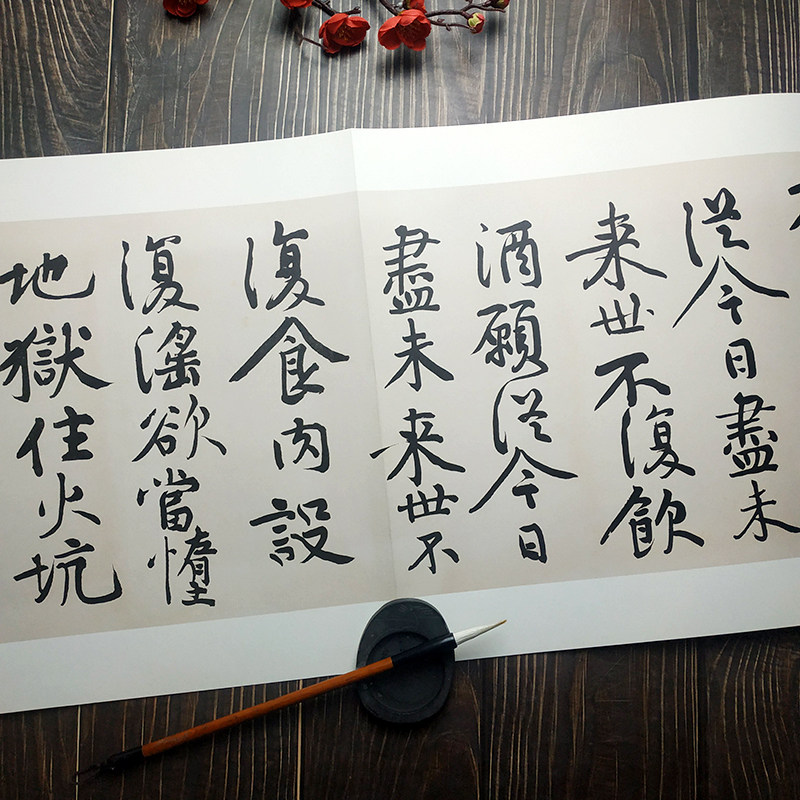 從今日盡未
来世不復飲
酒願從今日
盡未来世不
復食肉設
復滛欲當墮
地獄住火坑